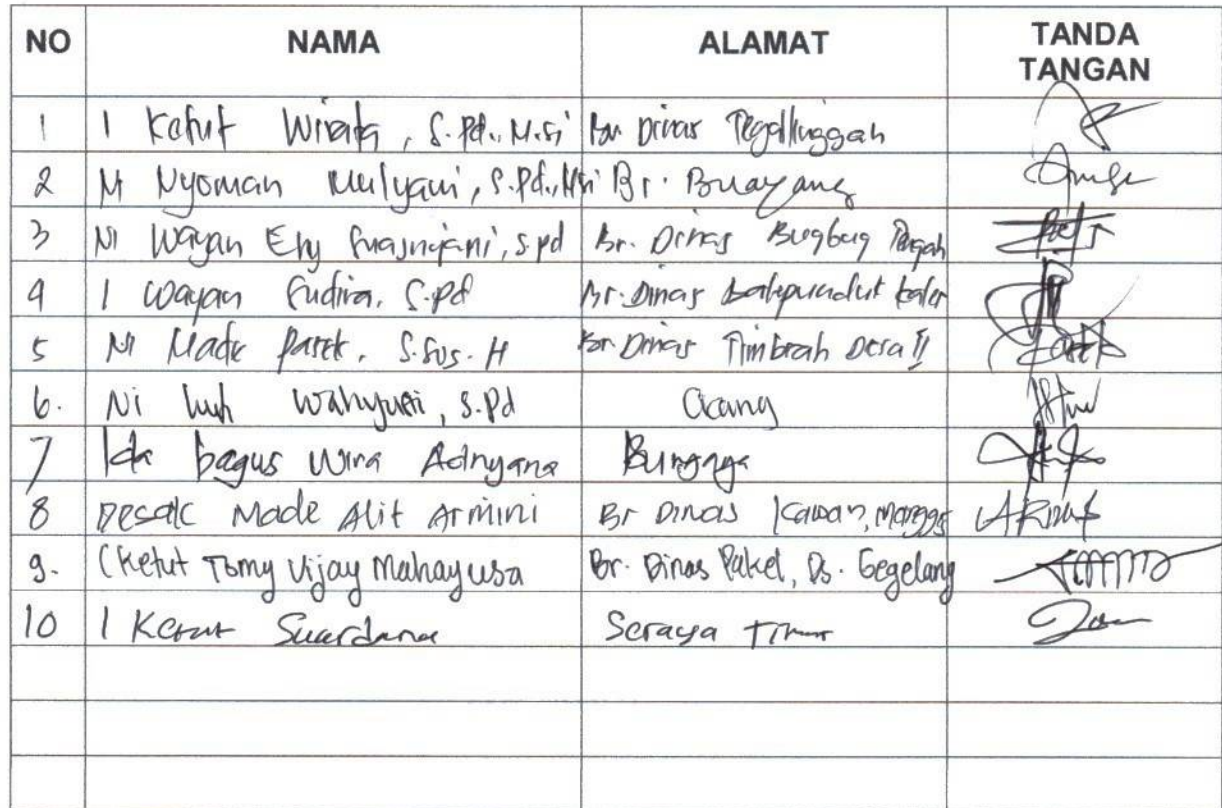 NO NAMA ALAMAT TANDA TANGAN
1 I Ketut Wirata, S.Pd., M.Si Br. Dinas Tegallinggah
2 Ni Nyoman Mulyani, S.Pd., MSi Br. Buayang
3 Ni Wayan Ery, S.pd Br. Dinas Bugbug Tengah
4 I Wayan Sudira, S.Pd Br. Dinas kaler
5 Ni Made Parek, S.Sos. H Br. Dinas Timbrah Desa II
6. Ni Luh Wahyuni, S.Pd
7 Ida bagus Wira Adnyana Bungaya
8 Desak Made Alit Armini Br Dinas Kawan, Manggis
9. I Ketut Tomy Vijay Mahayusa Br. Dinas Pakel, Ds. Gegelang
10 I Ketut Suardana Seraya Timur